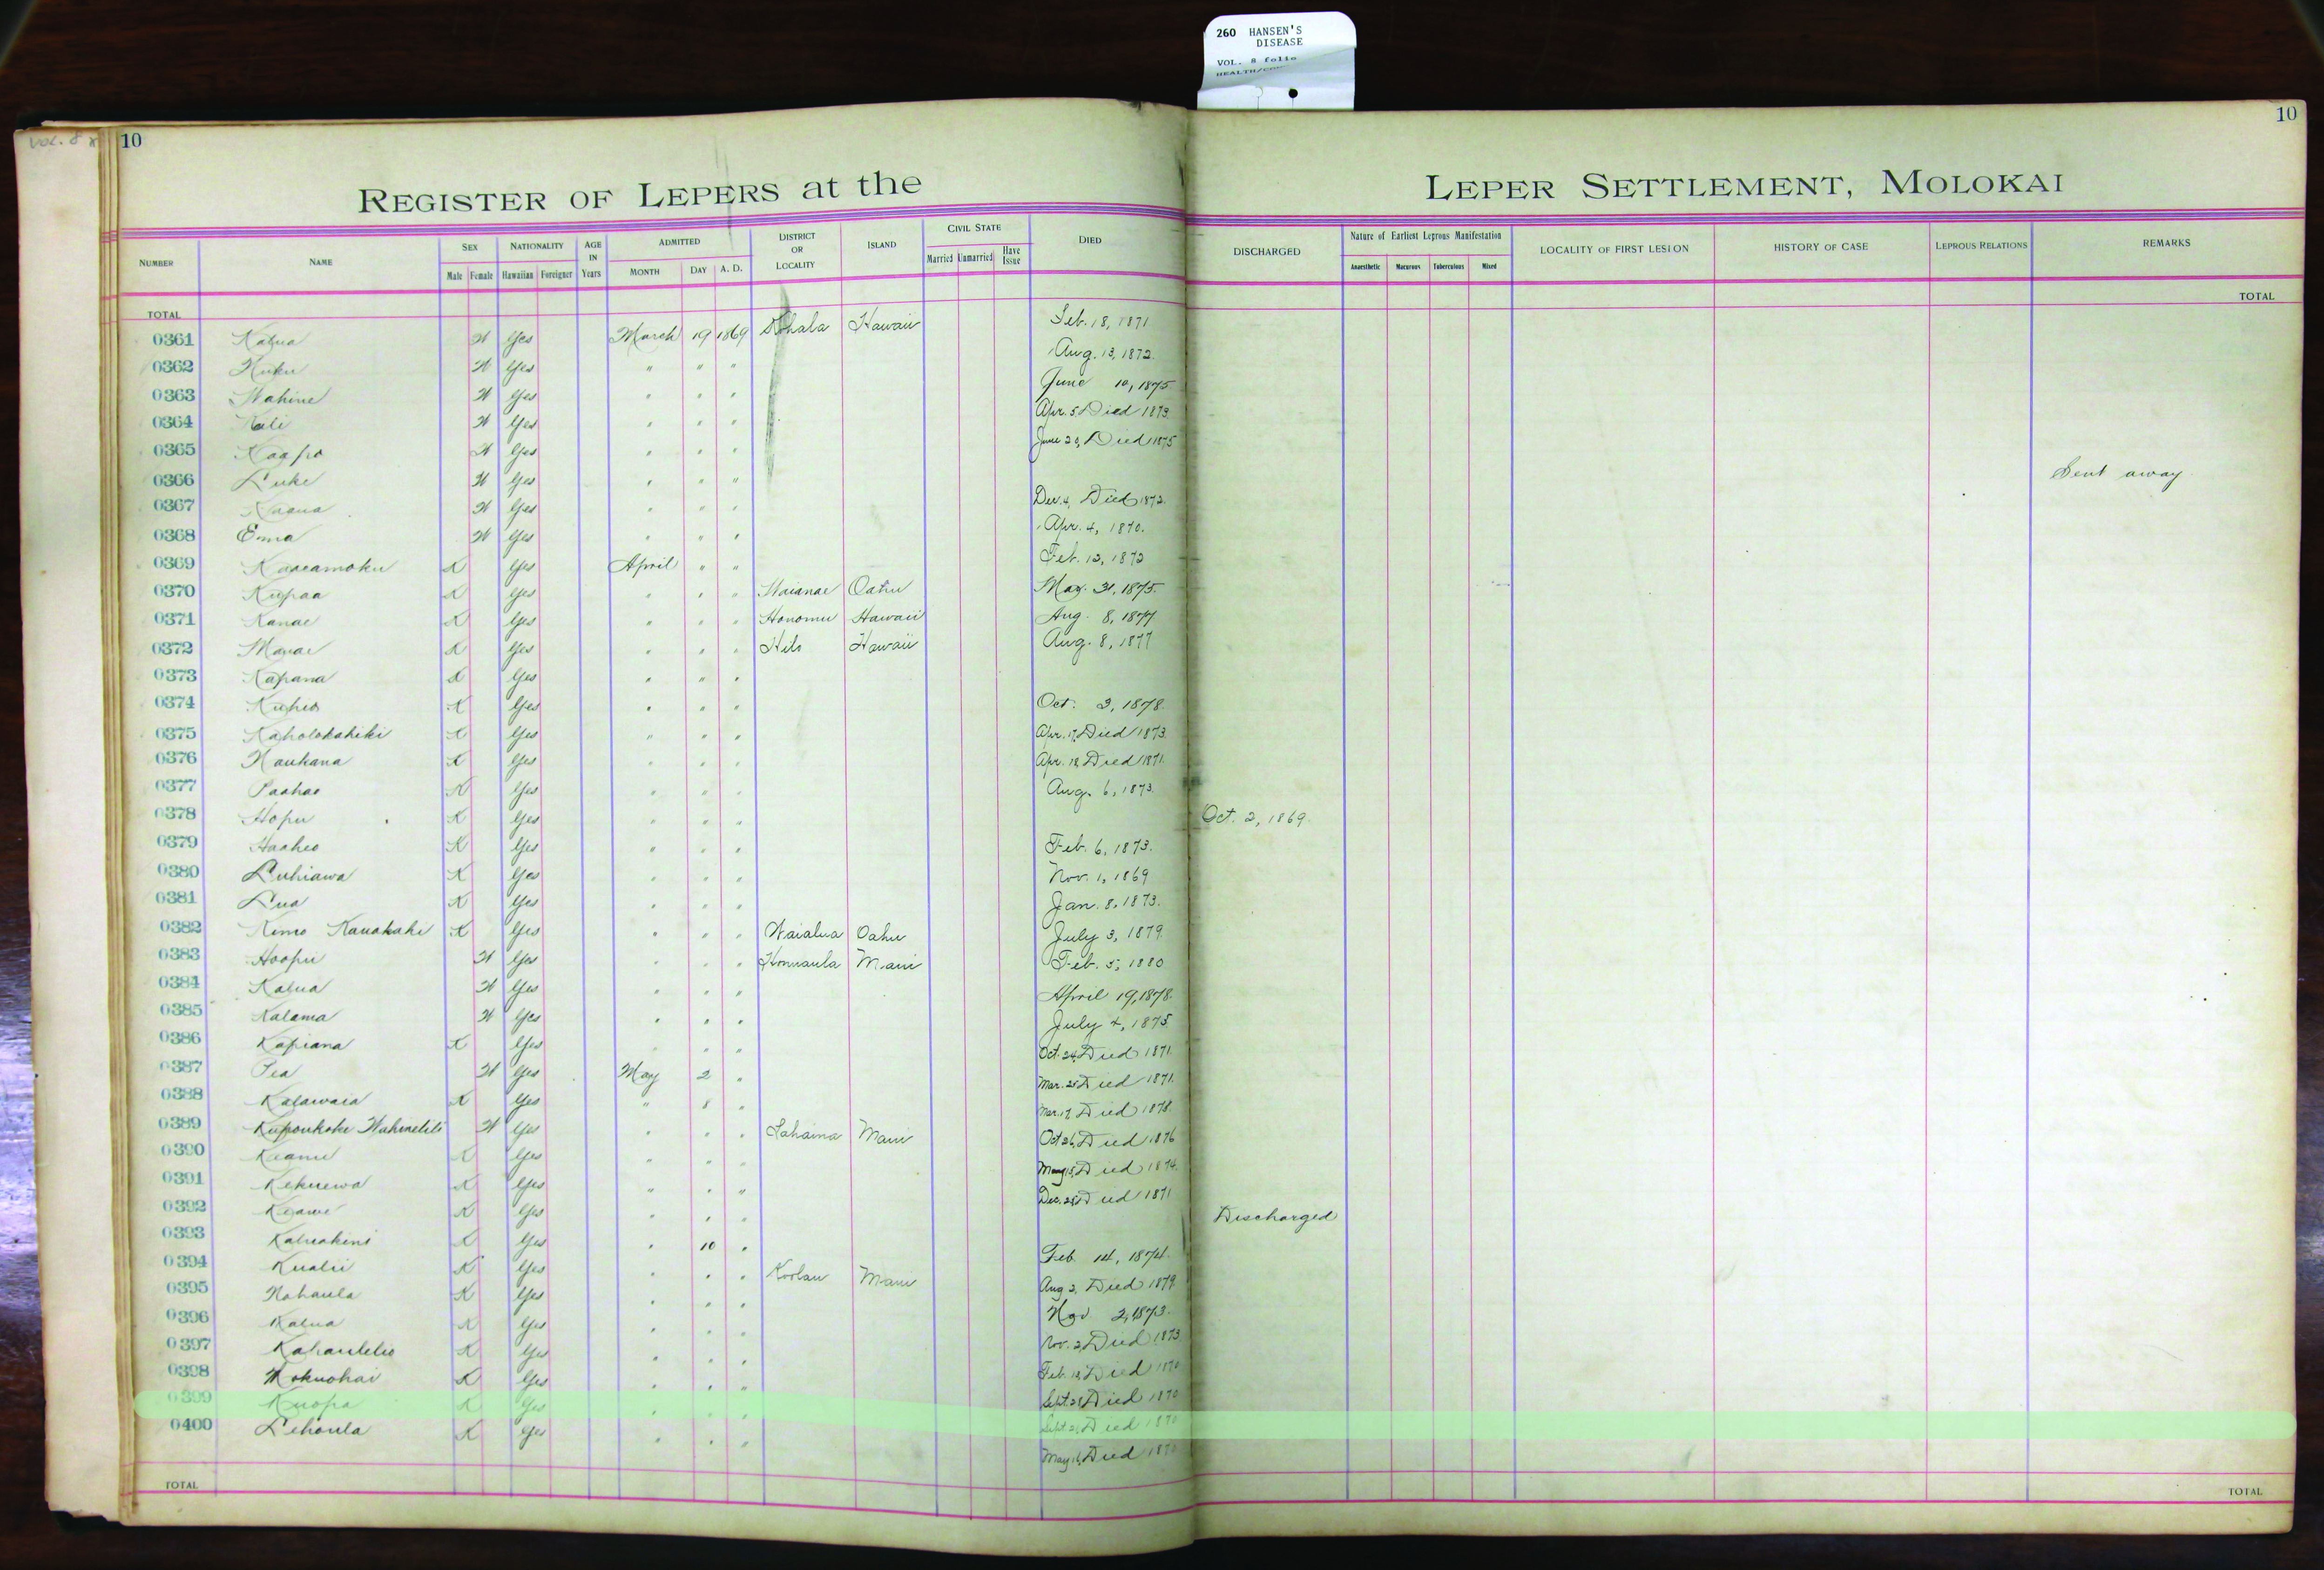 260 HANSEN'S
DISEASE
VOL. 8 folio
VOL. 8
10
10
REGISTER OF LEPERS at the LEPER SETTLEMENT, MOLOKAI
NUMBER NAME SEX Male Female NATIONALITY Hawaiian Foreigner AGE IN Years ADMITTED MONTH DAY A. D. DISTRICT OR LOCALITY ISLAND CIVIL STATE Married Unmarried Have Issue DIED DISCHARGED Nature of Earliest Leprous Manifestation Anaesthetic Macurous Tuberculous Mixed LOCALITY OF FIRST LESION HISTORY OF CASE LEPROUS RELATIONS REMARKS
TOTAL TOTAL
0361 Kalua W Yes March 19 1869 Kohala Hawaii Feb. 18, 1871
0362 Kuku W Yes " " " Aug. 13, 1872.
0363 Wahine W Yes " " " June 10, 1875
0364 W Yes " " " Apr. 5 Died 1873.
0365 Kaapo W Yes " " " June 29, Died 1875
0366 Luke W Yes " " " Sent away
0367 W Yes " " " Dec. 4, Died 1872.
0368 Emma W Yes " " " Apr. 4, 1870.
0369 Kaaeamoku K Yes April " " Feb. 12, 1872
0370 Kupaa K Yes " " " Waianae Oahu May. 31, 1875.
0371 Kanae K Yes " " " Honomu Hawaii Aug. 8, 1877
0372 K Yes " " " Hilo Hawaii Aug. 8, 1877
0373 Kapana K Yes " " "
0374 Kuheo K Yes " " " Oct. 3, 1878.
0375 Kaholokahiki K Yes " " " Apr. 17, Died 1873.
0376 Naukana K Yes " " " Apr. 18 Died 1871.
0377 Paahao K Yes " " " Aug. 6, 1873.
0378 Hopu K Yes " " " Oct. 2, 1869.
0379 Haaheo K Yes " " " Feb. 6, 1873.
0380 Luhiawa K Yes " " " Nov. 1, 1869
0381 Lua K Yes " " " Jan. 8, 1873.
0382 Kimo Kauakahi K Yes " " " Waialua Oahu July 3, 1879.
0383 Hoopii W Yes " " " Honuaula Maui Feb. 5, 1880
0384 Kalua W Yes " " " April 19, 1878.
0385 Kalama W Yes " " " July 4, 1875.
0386 Kapiana K Yes " " " Oct. 24, Died 1871.
0387 Pea W Yes May 2 " Mar. 25 Died 1871.
0388 Kalawaia K Yes " 8 " Mar. 17, Died 1878.
0389 Kupoukoke W Yes " " " Lahaina Maui Oct 26, Died 1876
0390 Keanu K Yes " " " May 15, Died 1874.
0391 Kekuewa K Yes " " " Dec. 28, Died 1871
0392 Keawe K Yes " " " Discharged
0393 Kaluakini K Yes " 10 " Feb. 14, 1874.
0394 Kualii K Yes " " " Koolau Maui Aug 2, Died 1879.
0395 Nohaula K Yes " " " Nov 2, 1873.
0396 Kalua K Yes " " " Nov. 2, Died 1873
0397 K Yes " " " Feb. 18, Died 1870
0398 Mokuohai K Yes " " " Sept. 28, Died 1870
0399 Kuopa K Yes " " " Sept. 21, Died 1870
0400 Lehoula K Yes " " " May 16, Died 1870
TOTAL TOTAL